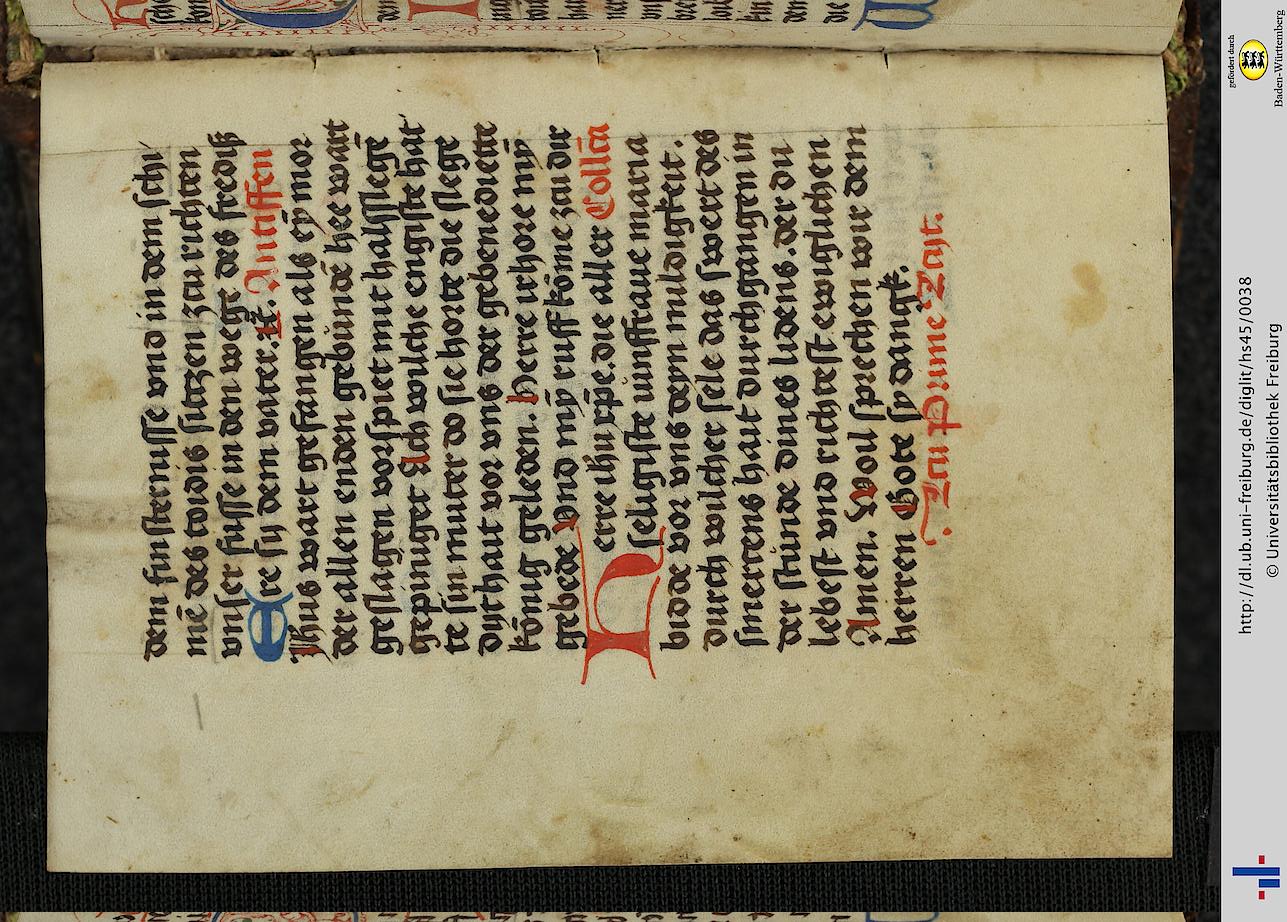 dem finsternusse vnd in dem schi
mē des toidis sitzen zcu richten
vnser fusse in den wege des fredis
Ere sy dem vater. Antiffen
Jhus wart gefangen als ey mor
der allen enden gebundē hee wart
geslagen vorspiet mit halsslege
gepiniget Ach wilche engiste hat
te sin muter do sie horte die slege
dyt haut vor vns der gebenediette
kōnig geleden. Herre irhore mȳ
gebede Vnd mȳ ruff kōme zcu dir
Herre ihū xp̄e. die aller Collcā
seligiste iunffraue maria
bidde vor vns dem mildigkeit.
durch wilcher sele das swert des
smertens hait durchgangen in
der stunde dines lidens. der du
lebest vnd richtest ewiglichen
Amen. Woil sprechen wir dem
herren Gote sy dangk.
Zcu Prime Zayt.
gefördert durch
Baden-Württemberg
http://dl.ub.uni-freiburg.de/diglit/hs45/0038
© Universitätsbibliothek Freiburg